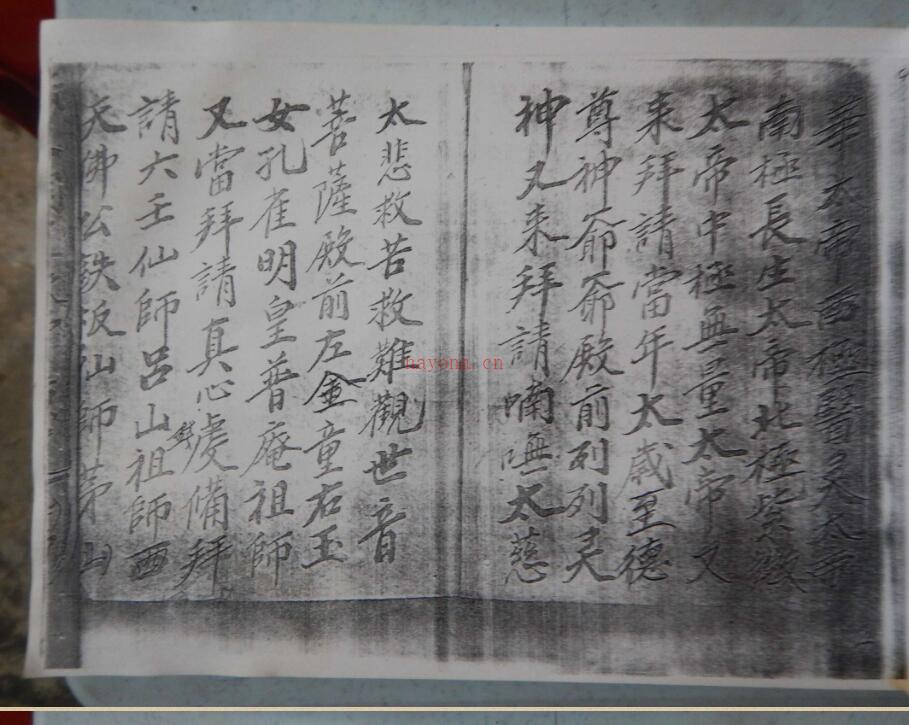 華太帝西極醫灵太帝
南極長生太帝北極紫微
太帝中極無量太帝又
来拜請當年太歲至德
尊神爺爺殿前列列灵
神又来拜請喃嘸太慈
太悲救苦救難觀世音
菩薩殿前左金童右玉
女孔雀明皇普庵祖師
又當拜請真心虔備拜
請六壬仙師呂山祖師西
天佛公鉄板仙師茅山
nayona.cn